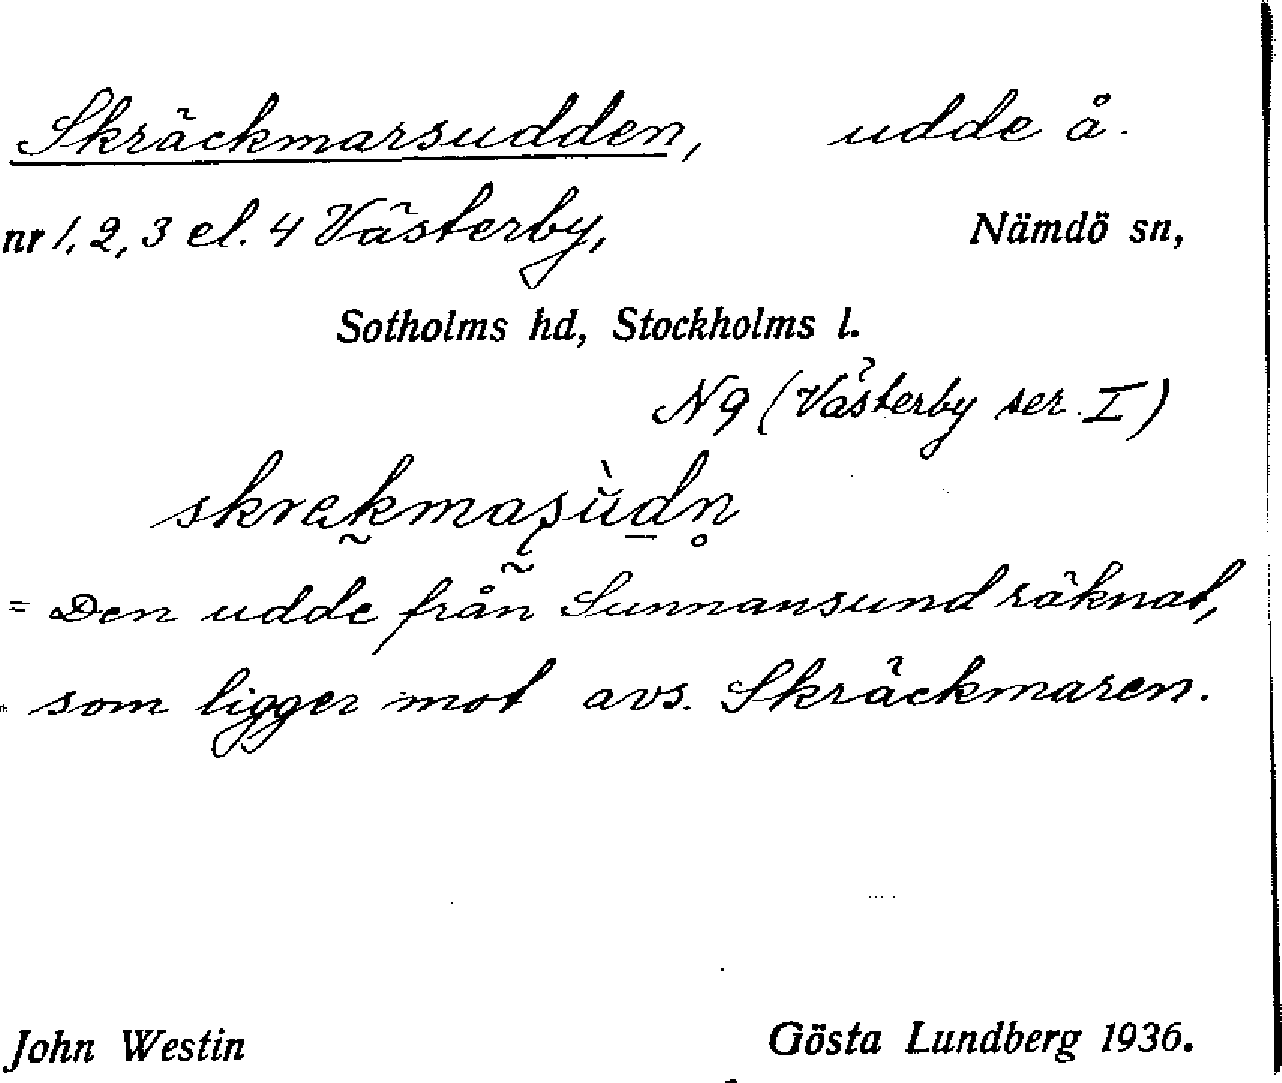 Skräckmarsudden, udde å.
nr 1, 2, 3 el. 4 Västerby, Nämdö sn,
Sotholms hd, Stockholms l.
N9 (Västerby ser. I)
= Den udde från Sunnansund räknat,
som ligger mot avs. Skräckmaren.
John Westin Gösta Lundberg 1936.